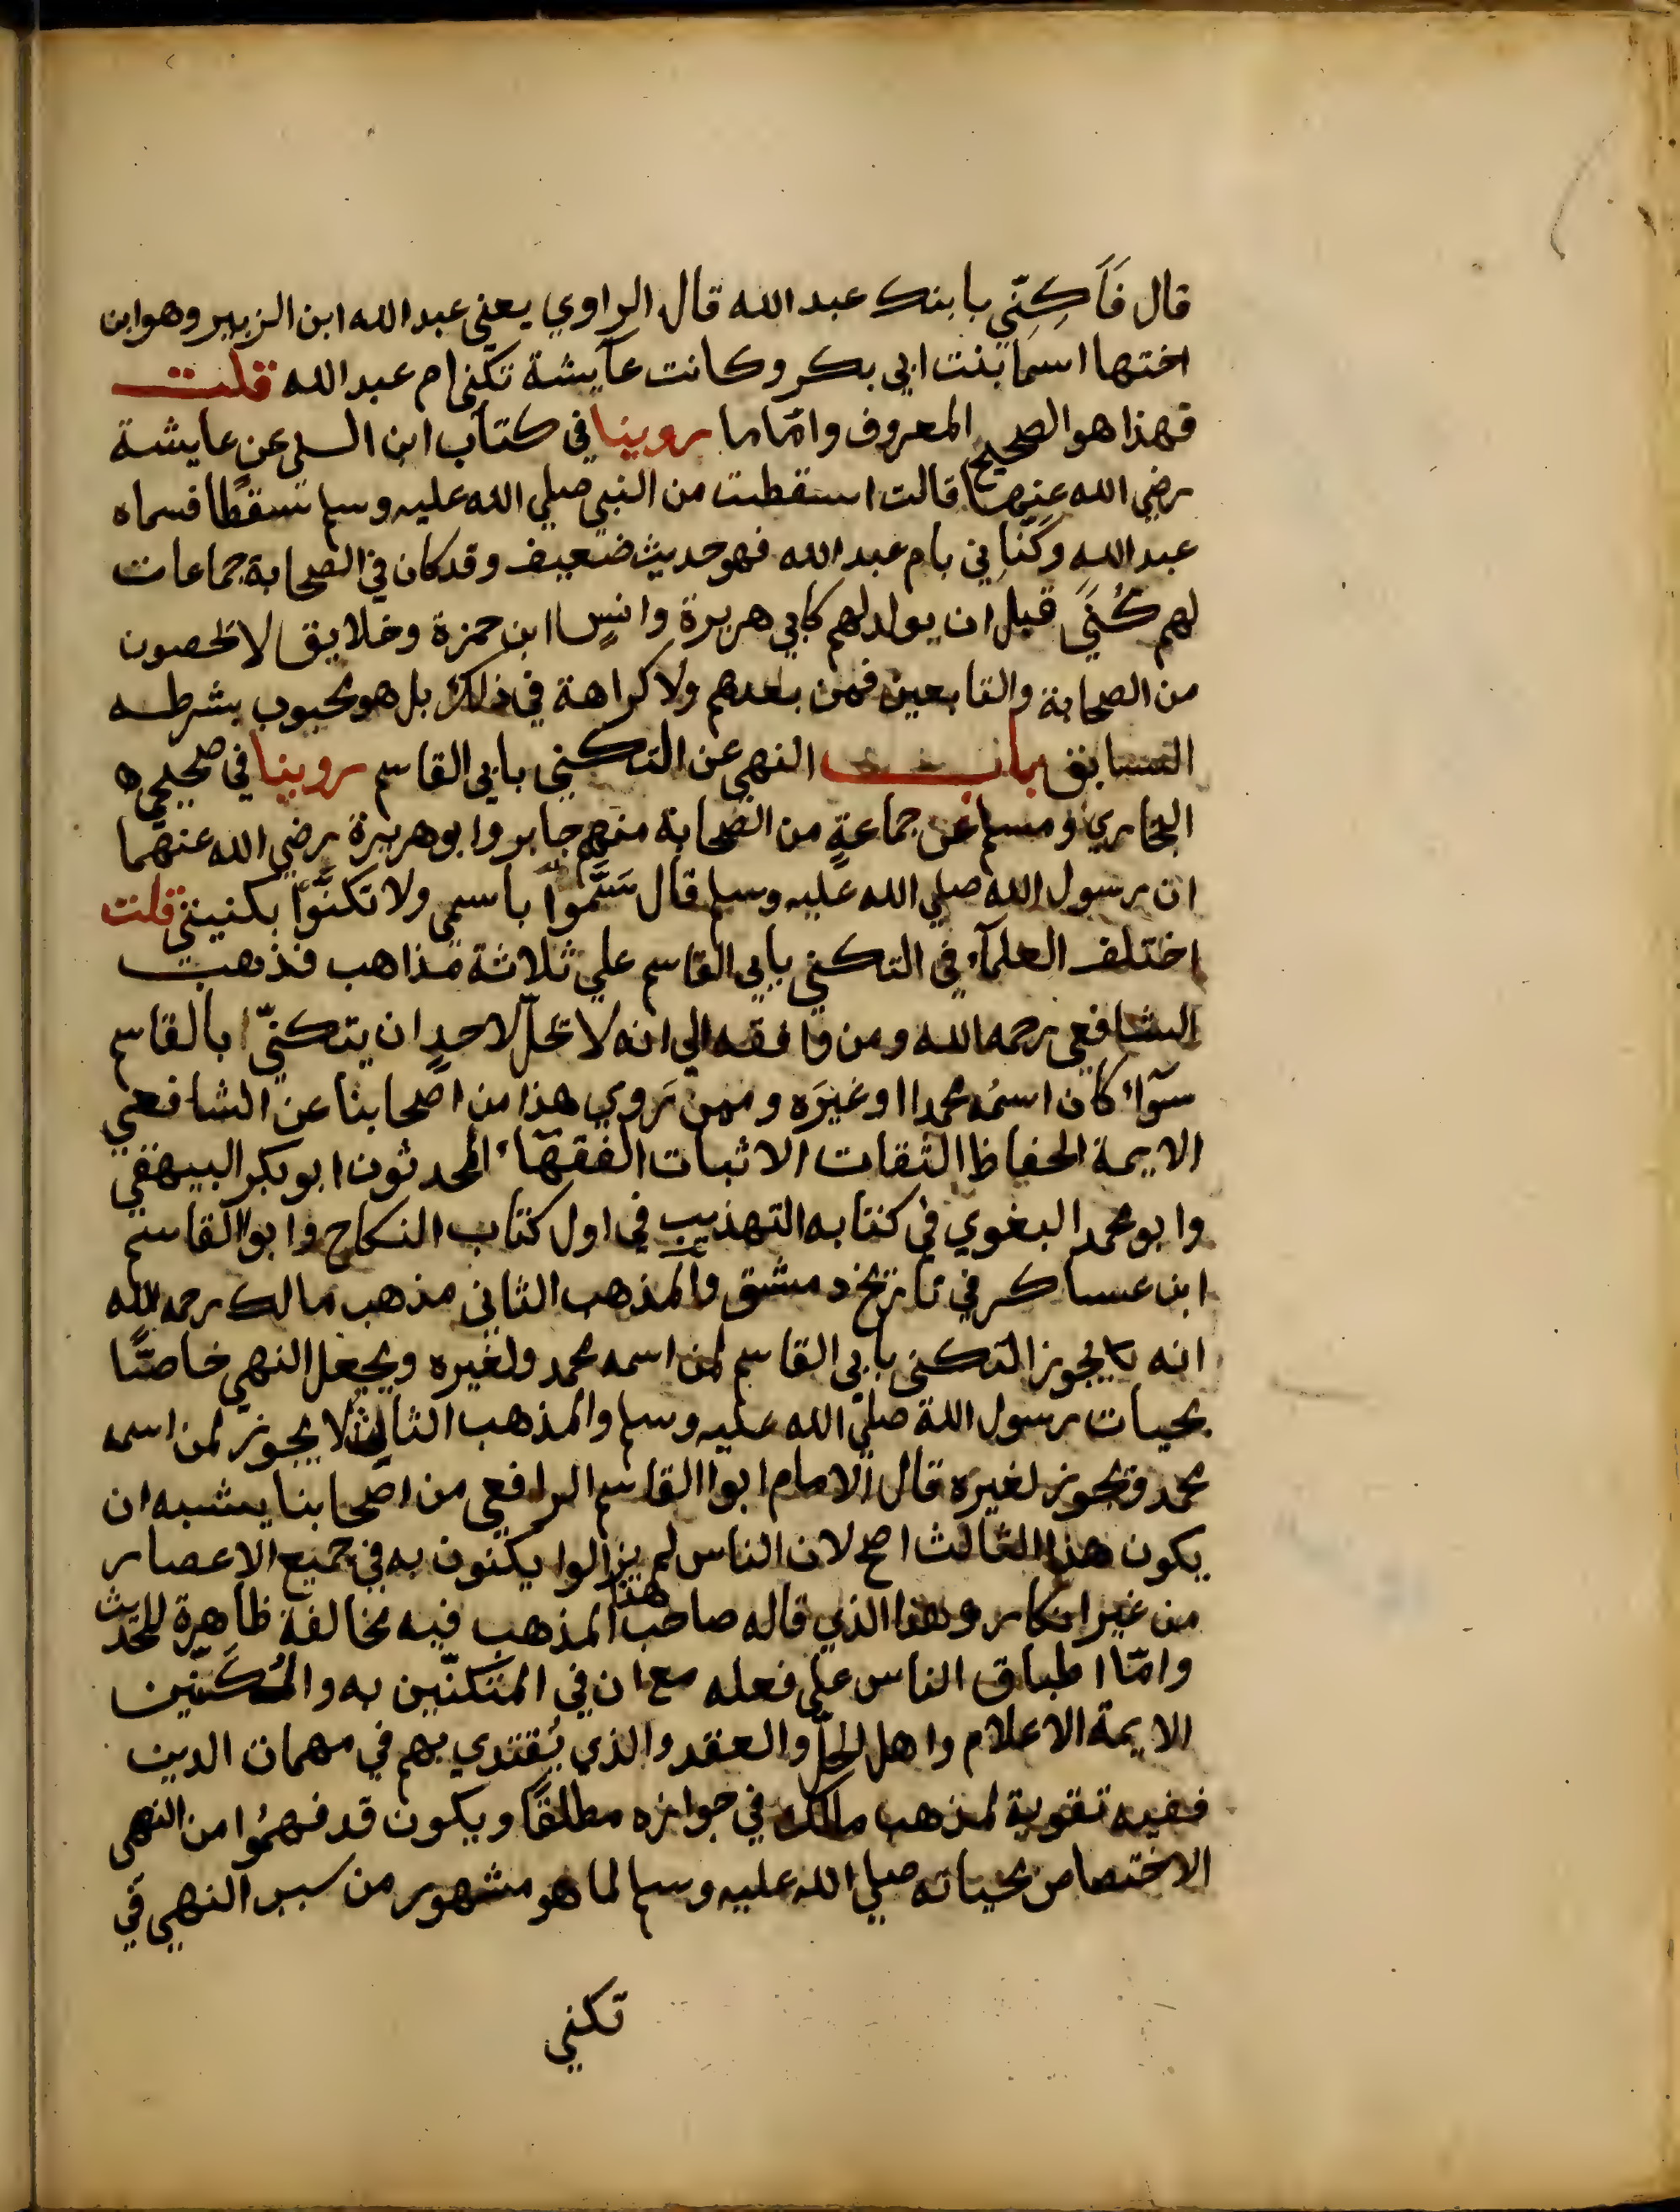 قال فَاَكِنّي بابنك عبد الله قال الراوي يعني عبد الله ابن الزبير وهو ابن
اختها اسما بنت ابي بكر وكانت عآيشة تكنى ام عبد الله قلت
فهذا هو الصحيح المعروف وامّا ما روينا في كتاب ابن السنى عن عايشة
رضي الله عنها قالت اسقطت من النبي صلي الله عليه وسلم سقطًا فسماه
عبد الله وكَنّاني بام عبد الله فهو حديث ضعيف وقد كان في الصحابة جماعات
لهم كُنًي قبل ان يولد لهم كابي هريرة وانسٍ ابن حمزة وخلايق لا يحصون
من الصحابة والتابعين فمن بعدهم ولا كراهة في ذلك بل هو محبوب بشرطه
السابق باب النهي عن التكني بابي القاسم روينا في صحيحي
البخاري ومسلم عن جماعةٍ من الصحابة منهم جابر وابو هريرة رضي الله عنهما
ان رسول الله صلي الله عليه وسلم قال سَمَّوا باسمي ولا تكنَّوا بكنيتي قلت
اختلف العلمآء في التكني بابي القاسم علي ثلاثة مذاهب فذهب
الشافعي رحمه الله ومن وافقه الي انه لا يحل لاحدٍ ان يتكنّي ابا القاسم
سوآء كان اسمُه محمدا او غيرَه وممن رَوي هذا من اصحابنا عن الشافعي
الايمة الحفاظ الثقات الاثبات الفقهآء المحدثون ابو بكر البيهقي
وابو محمد البغوي في كتابه التهذيب في اول كتاب النكاح وابوا القاسم
ابن عساكر في تاريخ دمشق والمذهب الثاني مذهب مالك رحمه الله
انه يجوز التكني بابي القاسم لمن اسمه محمد ولغيره ويجعل النهي خاصًّا
بحيات رسول الله صلي الله عليه وسلم والمذهب الثالث لا يجوز لمن اسمه
محمد ويجوز لغيره قال الامام ابوا القاسم الرافعي من اصحابنا يشبه ان
يكون هذا الثالث اصح لان الناس لم يزالوا يكنون به في جميع الاعصار
من غير انكار وهذا الذي قاله صاحب هذا المذهب فيه مخالفة ظاهرة للحديث
وامّا اطباق الناس علي فعله مع ان في المتكنّين به والمُكَنّين
الايمة الاعلام واهل الحلّ والعقد والذي يُقتدي بهم في مهمات الدين
ففيه تقوية لمذهب مالك في جوازه مطلقًا ويكون قد فهمُوا من النهي
الاختصاص بحياته صلي الله عليه وسلم لما هو مشهور من سبب النهي في
تكني